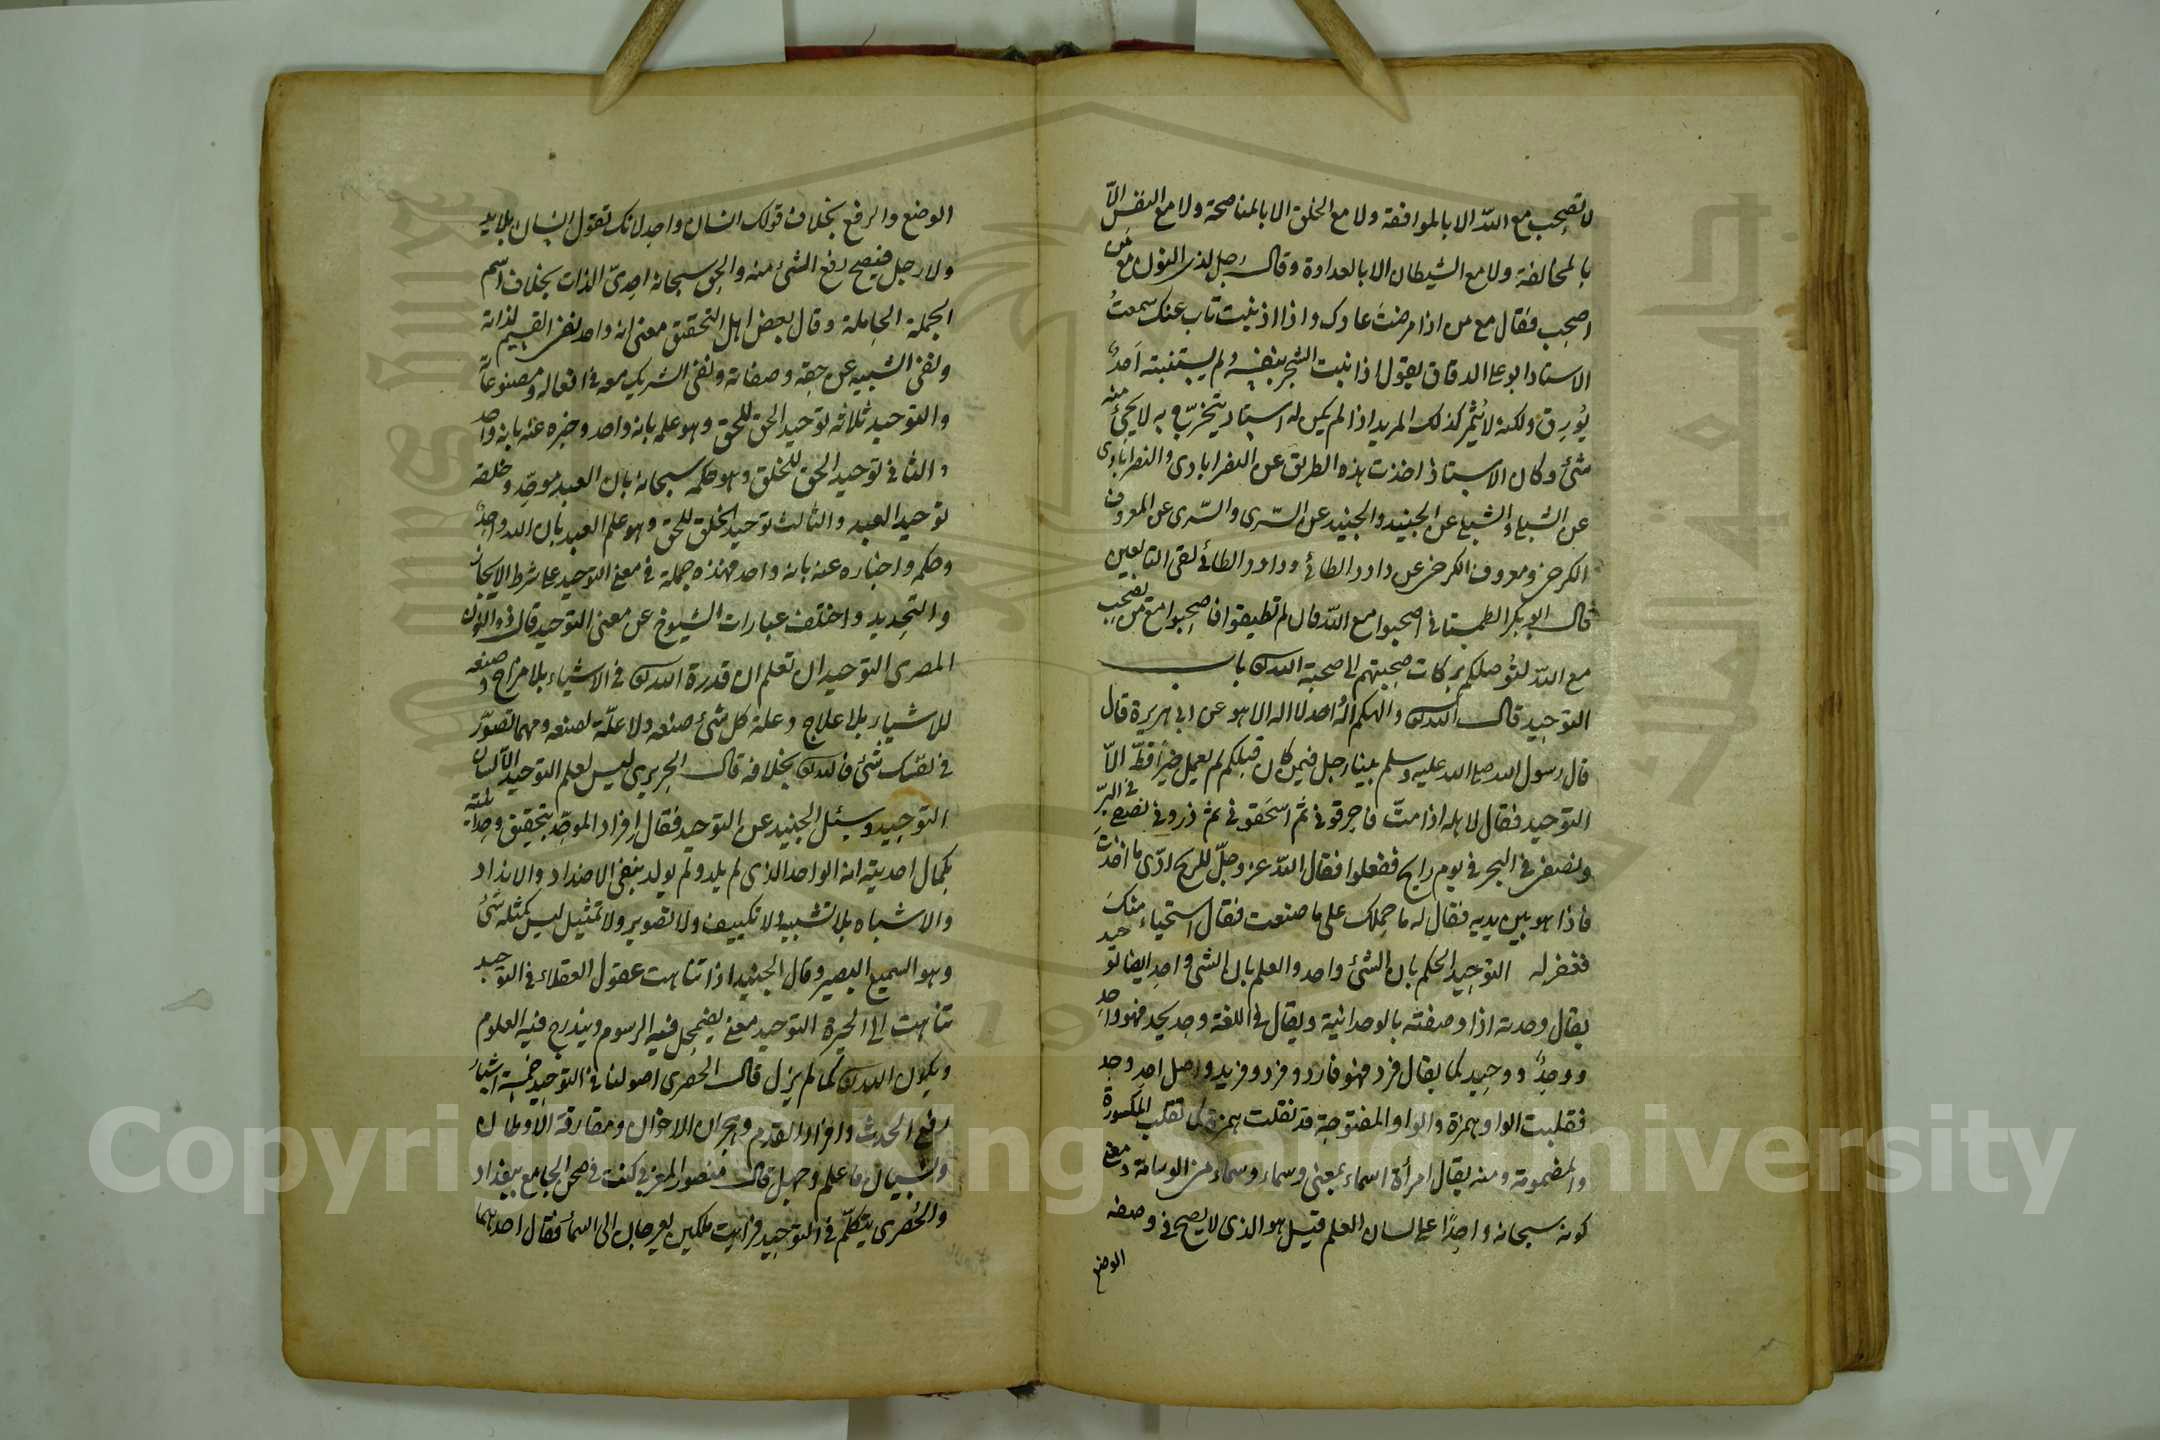 لا تصحب مع الله الا بالموافقة ولا مع الخلق الا بالمناصحة ولا مع النفس الّا
بالمخالفة ولا مع الشيطان الا بالعداوة وقال رجل لذى النون مع من
اصحب فقال مع من اذا مرضتَ عادك واذا اذنبت تاب عنك سمعتُ
الاستاد ابو علی الدقاق يقول اذا نبت الشجر بنفسه ولم يستنبته اَحدٌ
يُورِق ولكنه لا يُثمِر كذلك المريد اذا لم يكن له استاد يتخرّج به لا يجئ منه
شئ وكان الاستاذ اخذت هذه الطريق عن النصرابادى والنصرابادى
عن الشبلى والشبلى عن الجنيد والجنيد عن السّرى والسّرى عن المعروف
الكرخى ومعروف الكرخى عن داود الطائى وداود الطائى لقى التابعين
قال ابو بكر الطمستانى اصحبوا مع الله قال لم تطيقوا فاصحبوا مع من يصحب
مع الله لتُوصلكم بركات صحبتهم الى صحبة الله باب
التوحيد قال الله والهكم اله واحد لا اله الا هو عن ابى هريرة قال
قال رسول الله صلى الله عليه وسلم بينا رجل فيمن كان قبلكم لم يعمل خيرًا قطّ الّا
التوحيد فقال لاهله اذا متّ فاحرقونى ثم اسحقونى ثم ذرونى نصفى فى البرّ
ونصفى فى البحر فى يوم رايح ففعلوا فقال الله عز وجلّ للريح ادّى ما اخذتِ
فاذا هو بين يديه فقال له ما حملك على ما صنعت فقال استحياء منك
فغفر له التوحيد الحكم بان الشئ واحد والعلم بان الشى واحد ايضا توحيد
يقال وحدته اذا وصفته بالوحدانية ويقال فى اللغة وحد يحد فهو واحد
ووحدٌ ووحيد كما يقال فرد فهو فارد وفرد وفريد واصل احد وحد
فقلبت الواو همزة والواو المفتوحة قد تقلب همزة كما تقلب المكسورة
والمضمومة ومنه يقال امرأة اسماء بمعنى وسماء وسماء من الوسامة ومعنى
كونه سبحانه واحدًا على لسان العلم قيل هو الذى لا يصح فى وصفه
الوضع
الوضع والرفع بخلاف قولك انسان واحد لانك تقول انسان بلا يد
ولا رجل فيصح رفع الشئ منه والحق سبحانه احدىّ الذات بخلاف اسم
الجملة الحاملة وقال بعض اهل التحقيق معنى انه واحد نفى القسيم لذاته
ونفى الشبيه عن حقه وصفاته ونفى الشريك معه فى افعاله ومصنوعاته
والتوحيد ثلاثه توحيد الحق للحق وهو علمه بانه واحد وخبره عنه بانه واحد
والثانى توحيد الحق للخلق وهو حكمه سبحانه بان العبد موحّد وخلقه
توحيد العبد والثالث توحيد الخلق للحق وهو علم العبد بان الله واحدٌ
وحكمه واخباره عنه بانه واحد فهذه جملة فى معنى التوحيد على شرط الايجاز
والتحديد واختلف عبارات الشيوخ عن معنى التوحيد قال ذو النون
المصرى التوحيد ان تعلم ان قدرة الله فى الاشياء بلا مزاج وصنعه
للاشياء بلا علاج وعلة كل شئ صنعه ولا علّة لصنعه ومهما تصوّر
فى نفسك شئ فالله بخلافه قال الجريرى ليس لعلم التوحيد الّا لسان
التوحيد وسئل الجنيد عن التوحيد فقال افراد الموحّد بتحقيق وحدانيته
بكمال احديته انه الواحد الذى لم يلد ولم يولد بنفى الاضداد والانداد
والاشباه بلا تشبيه ولا تكييف ولا تصوير ولا تمثيل ليس كمثله شئ
وهو السميع البصير وقال الجنيد اذا تناهت عقول العقلاء فى التوحيد
تناهت الى الحيرة التوحيد معنى يضمحل فيه الرسوم ويندرج فيه العلوم
ويكون الله كما لم يزل قال الحصرى اصولنا فى التوحيد خمسة اشياء
رفع الحدث وافراد القدم وهجران الاخوان ومفارقة الاوطان
ونسيان ما علم وجهل قال منصور المغربى كنت فى صحن الجامع ببغداد
والحُصرى يتكلّم فى التوحيد فرايت ملكين يعرجان الى السماء فقال احدهما
Copyright © King Saud University